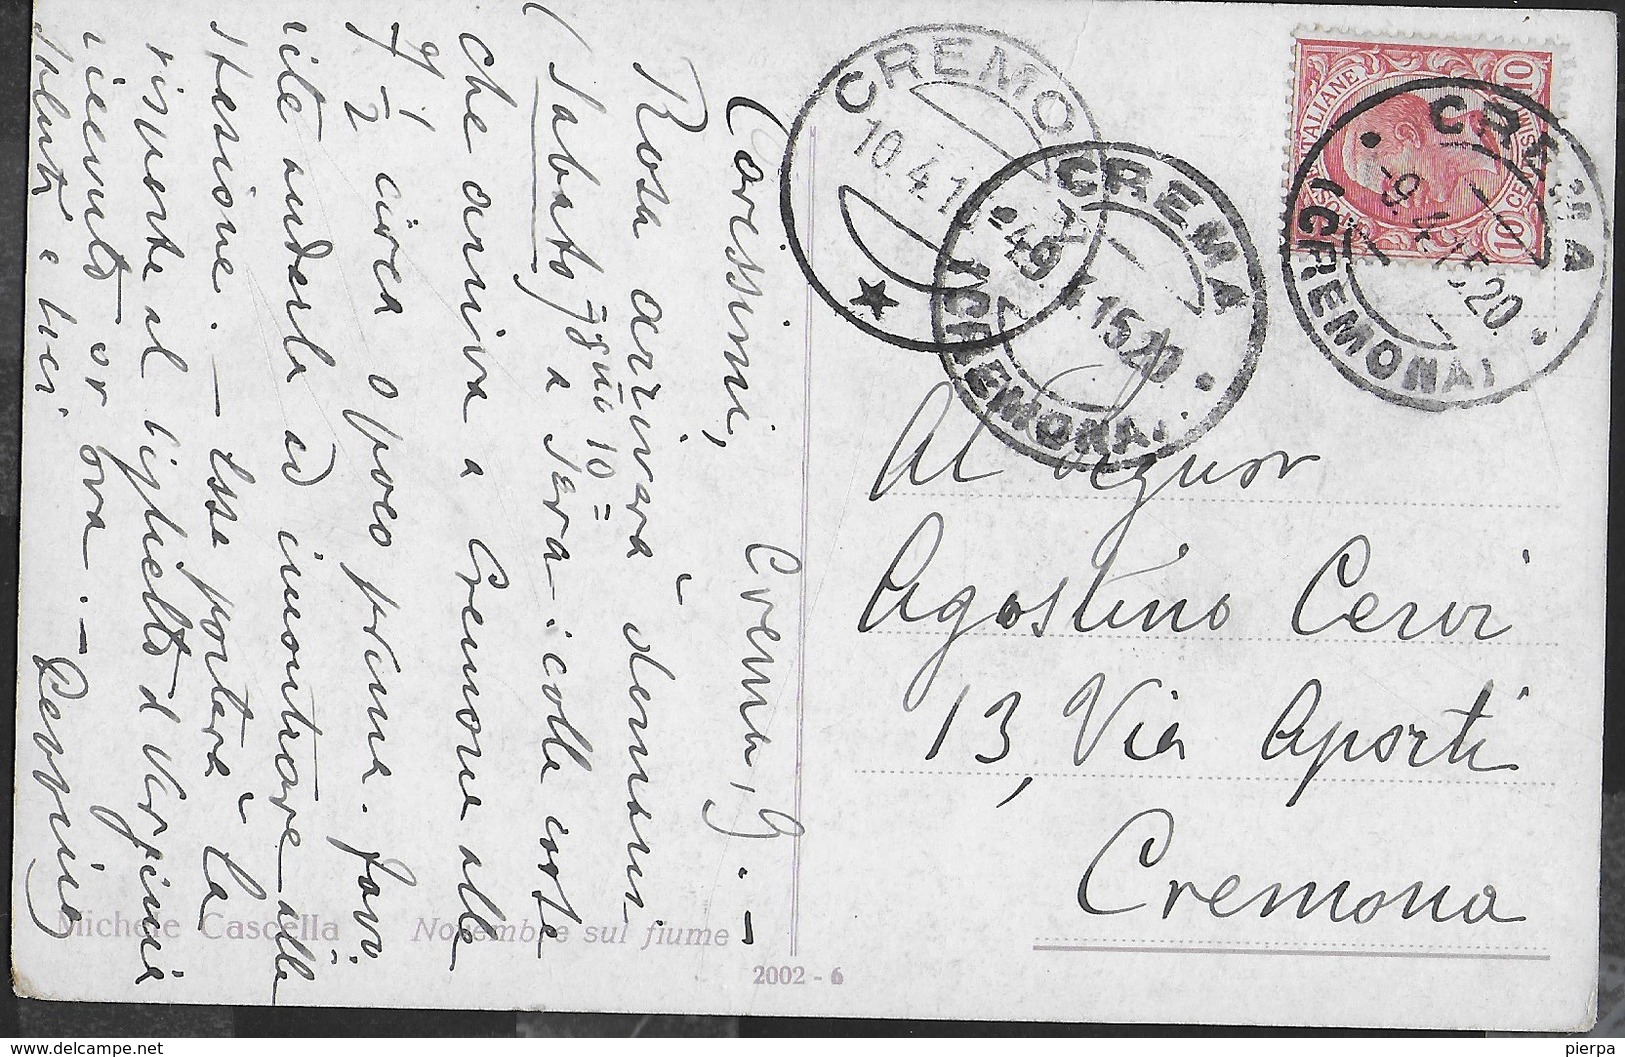 Crema, 9. —
Carissimi,
Rosa arriverà domani
(Sabato 10 =
a sera. colla corsa
che arriva a Cremona alle
9 1/2 circa o poco prima.
andarla ad incontrare alla
stazione. — Essa porterà la
risposta al biglietto d
ricevuto or ora. —
Saluti e baci
Michele Cascella Novembre sul fiume
2002 - 6
CREMO
10.4.1
CREMA
(CREMONA)
15.20
CREMA
(CREMONA)
-9.
15.20
POSTE ITALIANE
10
10
Al Signor
Agostino Cervi
13, Via Aporti
Cremona
delcampe.net
pierpa